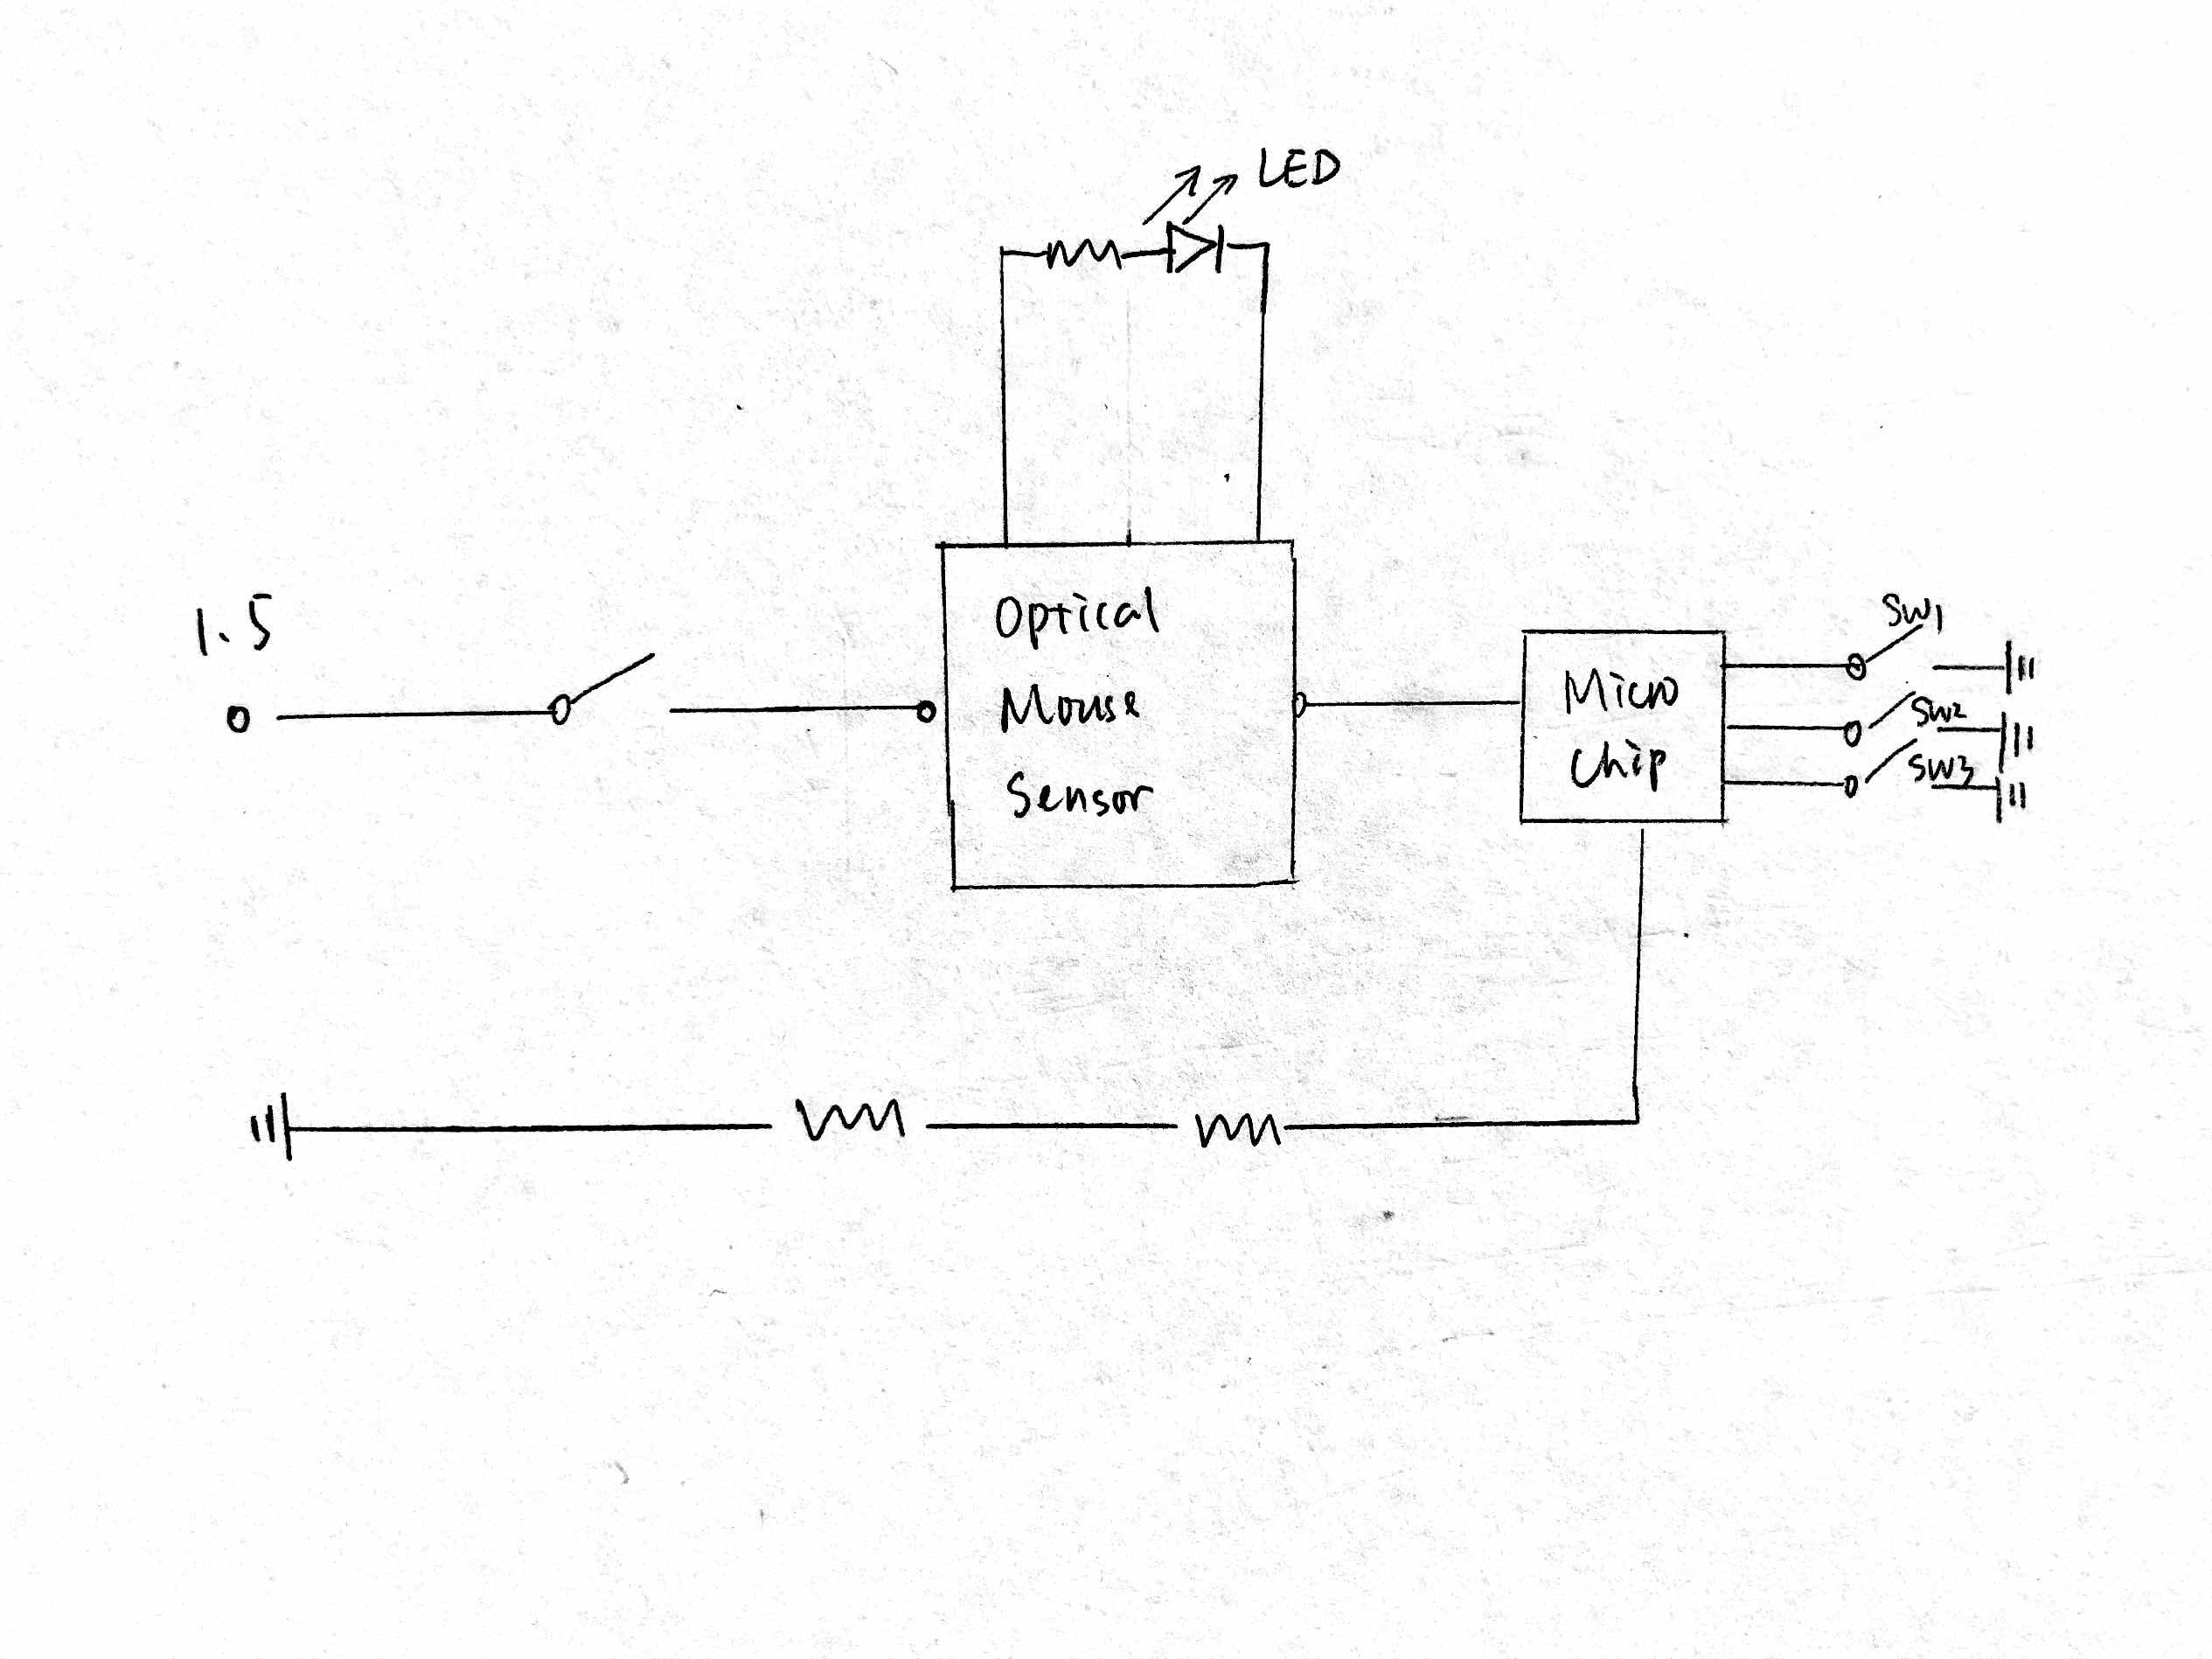 LED
1.5
Optical
Mouse
Sensor
Micro
Chip
SW1
SW2
SW3